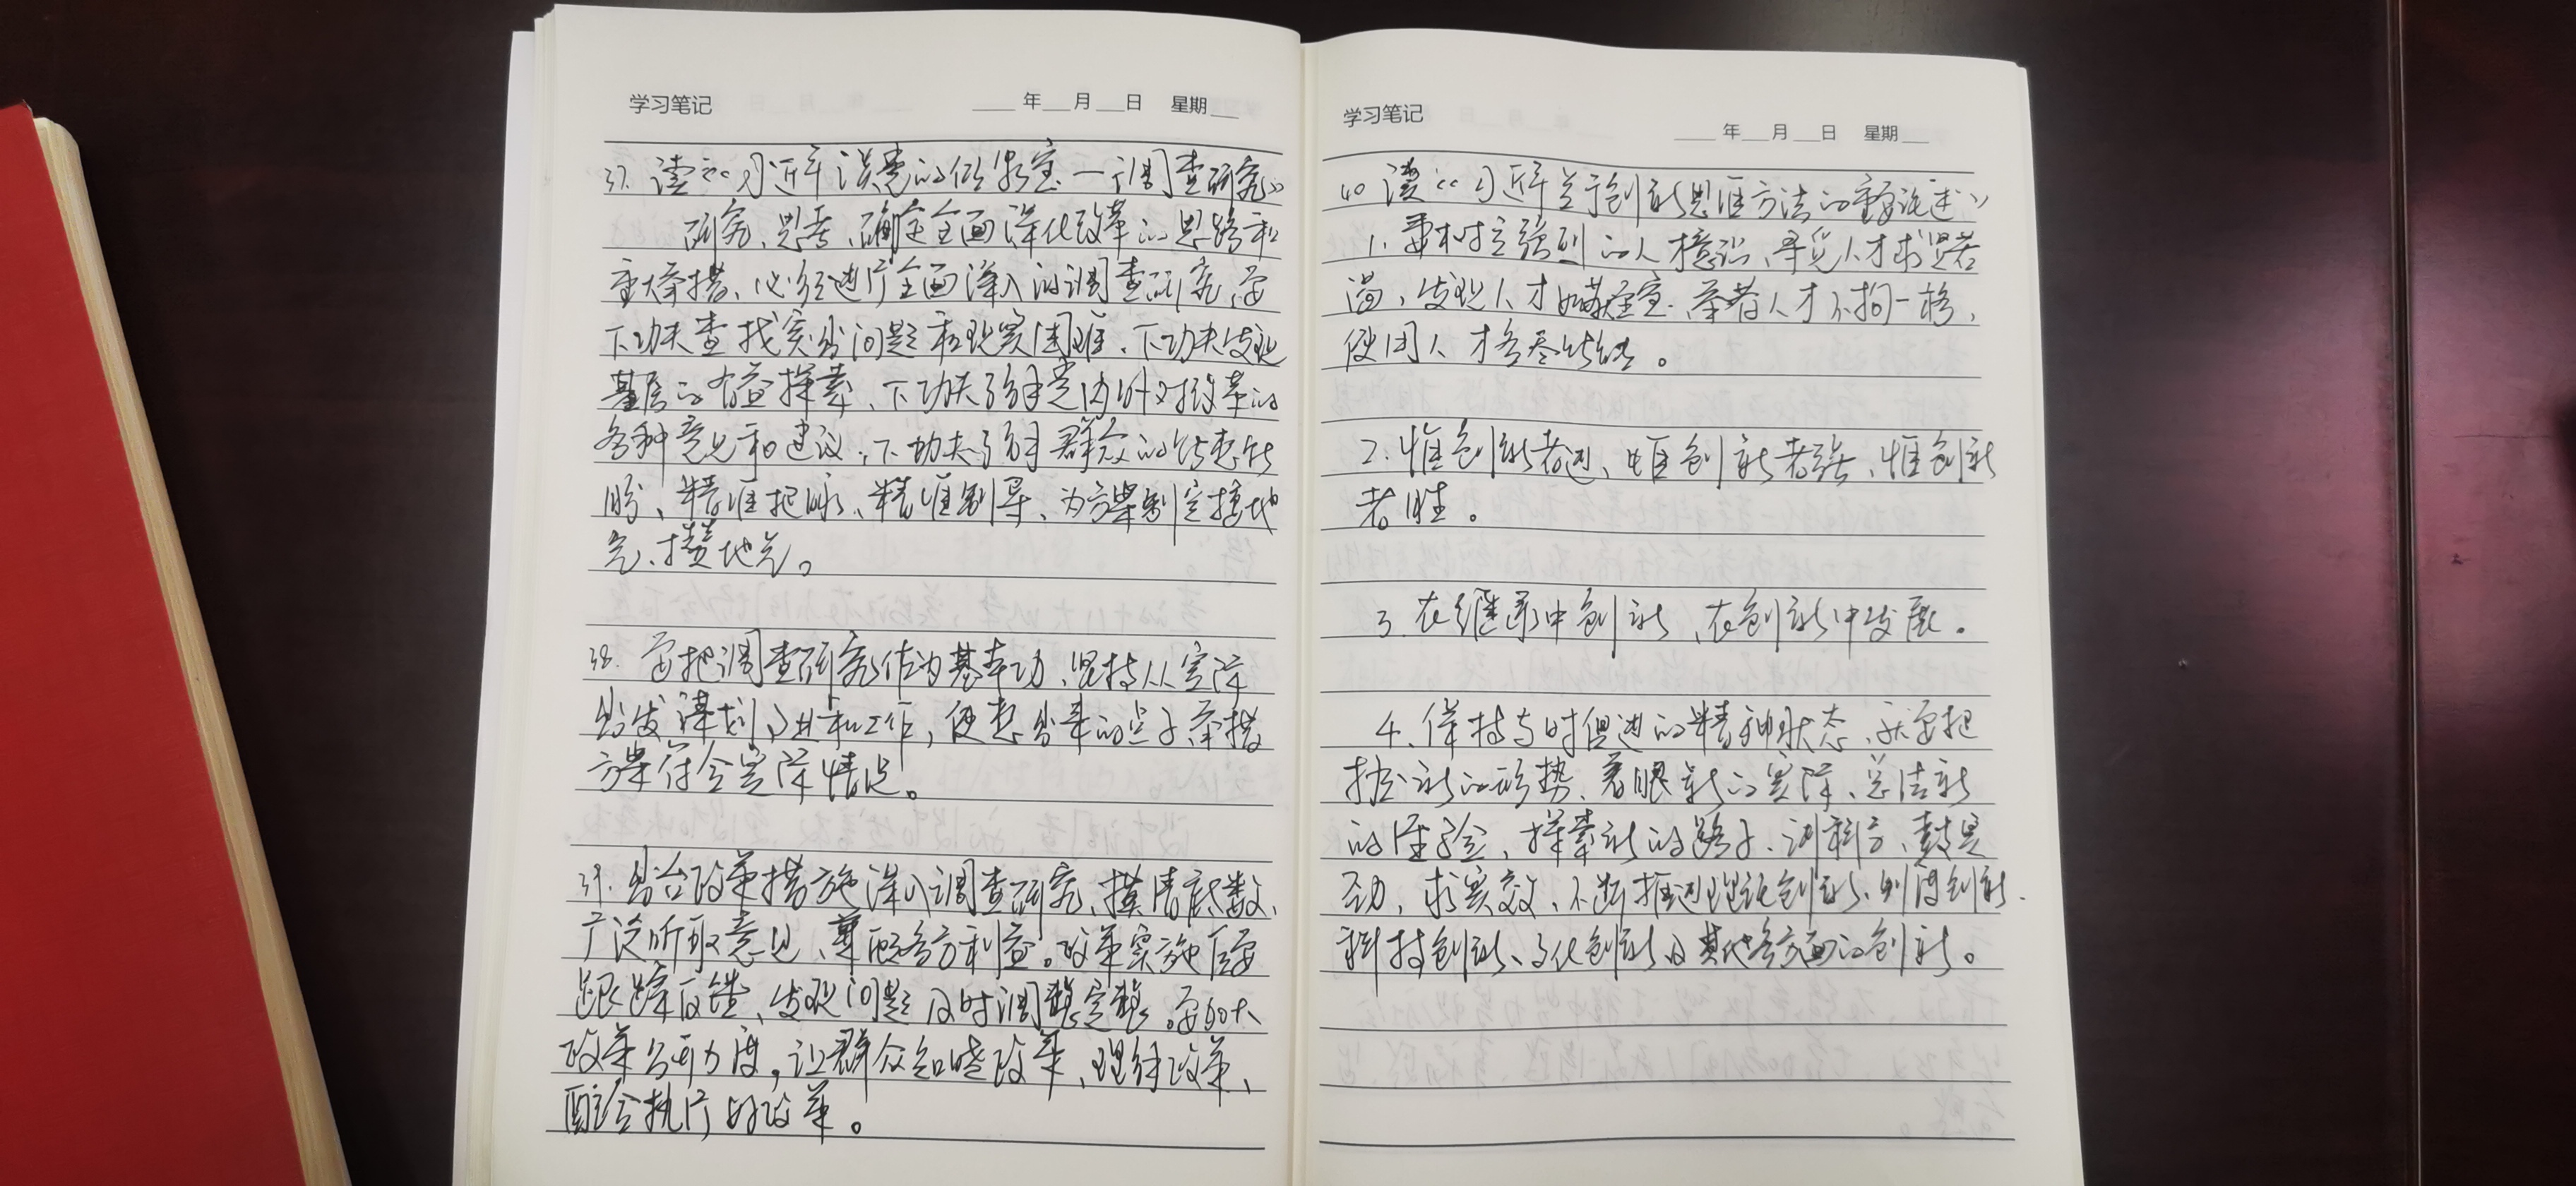 学习笔记
____年___月___日 星期___
37. 读《习近平谈党的传家宝—调查研究》
研究、思考、确定全面深化改革的思路和
重大举措、必须进行全面深入的调查研究,要
下功夫查找突出问题和现实困难、下功夫发现
基层的有益探索、下功夫了解党内外对改革的
各种意见和建议,下功夫了解群众的所思所
盼、精准把脉、精准制导、为方案制定接地
气、接地气。
38. 要把调查研究作为基本功、坚持从实际
出发谋划事业和工作,使想出来的点子、举措
方案符合实际情况。
39. 出台改革措施深入调查研究、摸清底数、
广泛听取意见、兼顾各方利益。改革实施后要
跟踪反馈、发现问题及时调整完整。要加大
改革公开力度,让群众知晓改革、理解改革、
配合执行好改革。
学习笔记
____年___月___日 星期___
40 读《习近平关于创新思维方法的重要论述》
1. 要树立强烈的人才意识、寻觅人才求贤若
渴,发现人才如获至宝、举荐人才不拘一格、
使用人才各尽所能。
2. 惟创新者进、惟创新者强、惟创新
者胜。
3. 在继承中创新、在创新中发展。
4. 保持与时俱进的精神状态、就要把
握新的形势、着眼新的实际、总结新
的经验,探索新的路子、
劲,求实效、不断推进理论创新、制度创新、
科技创新、文化创新及其他各方面的创新。